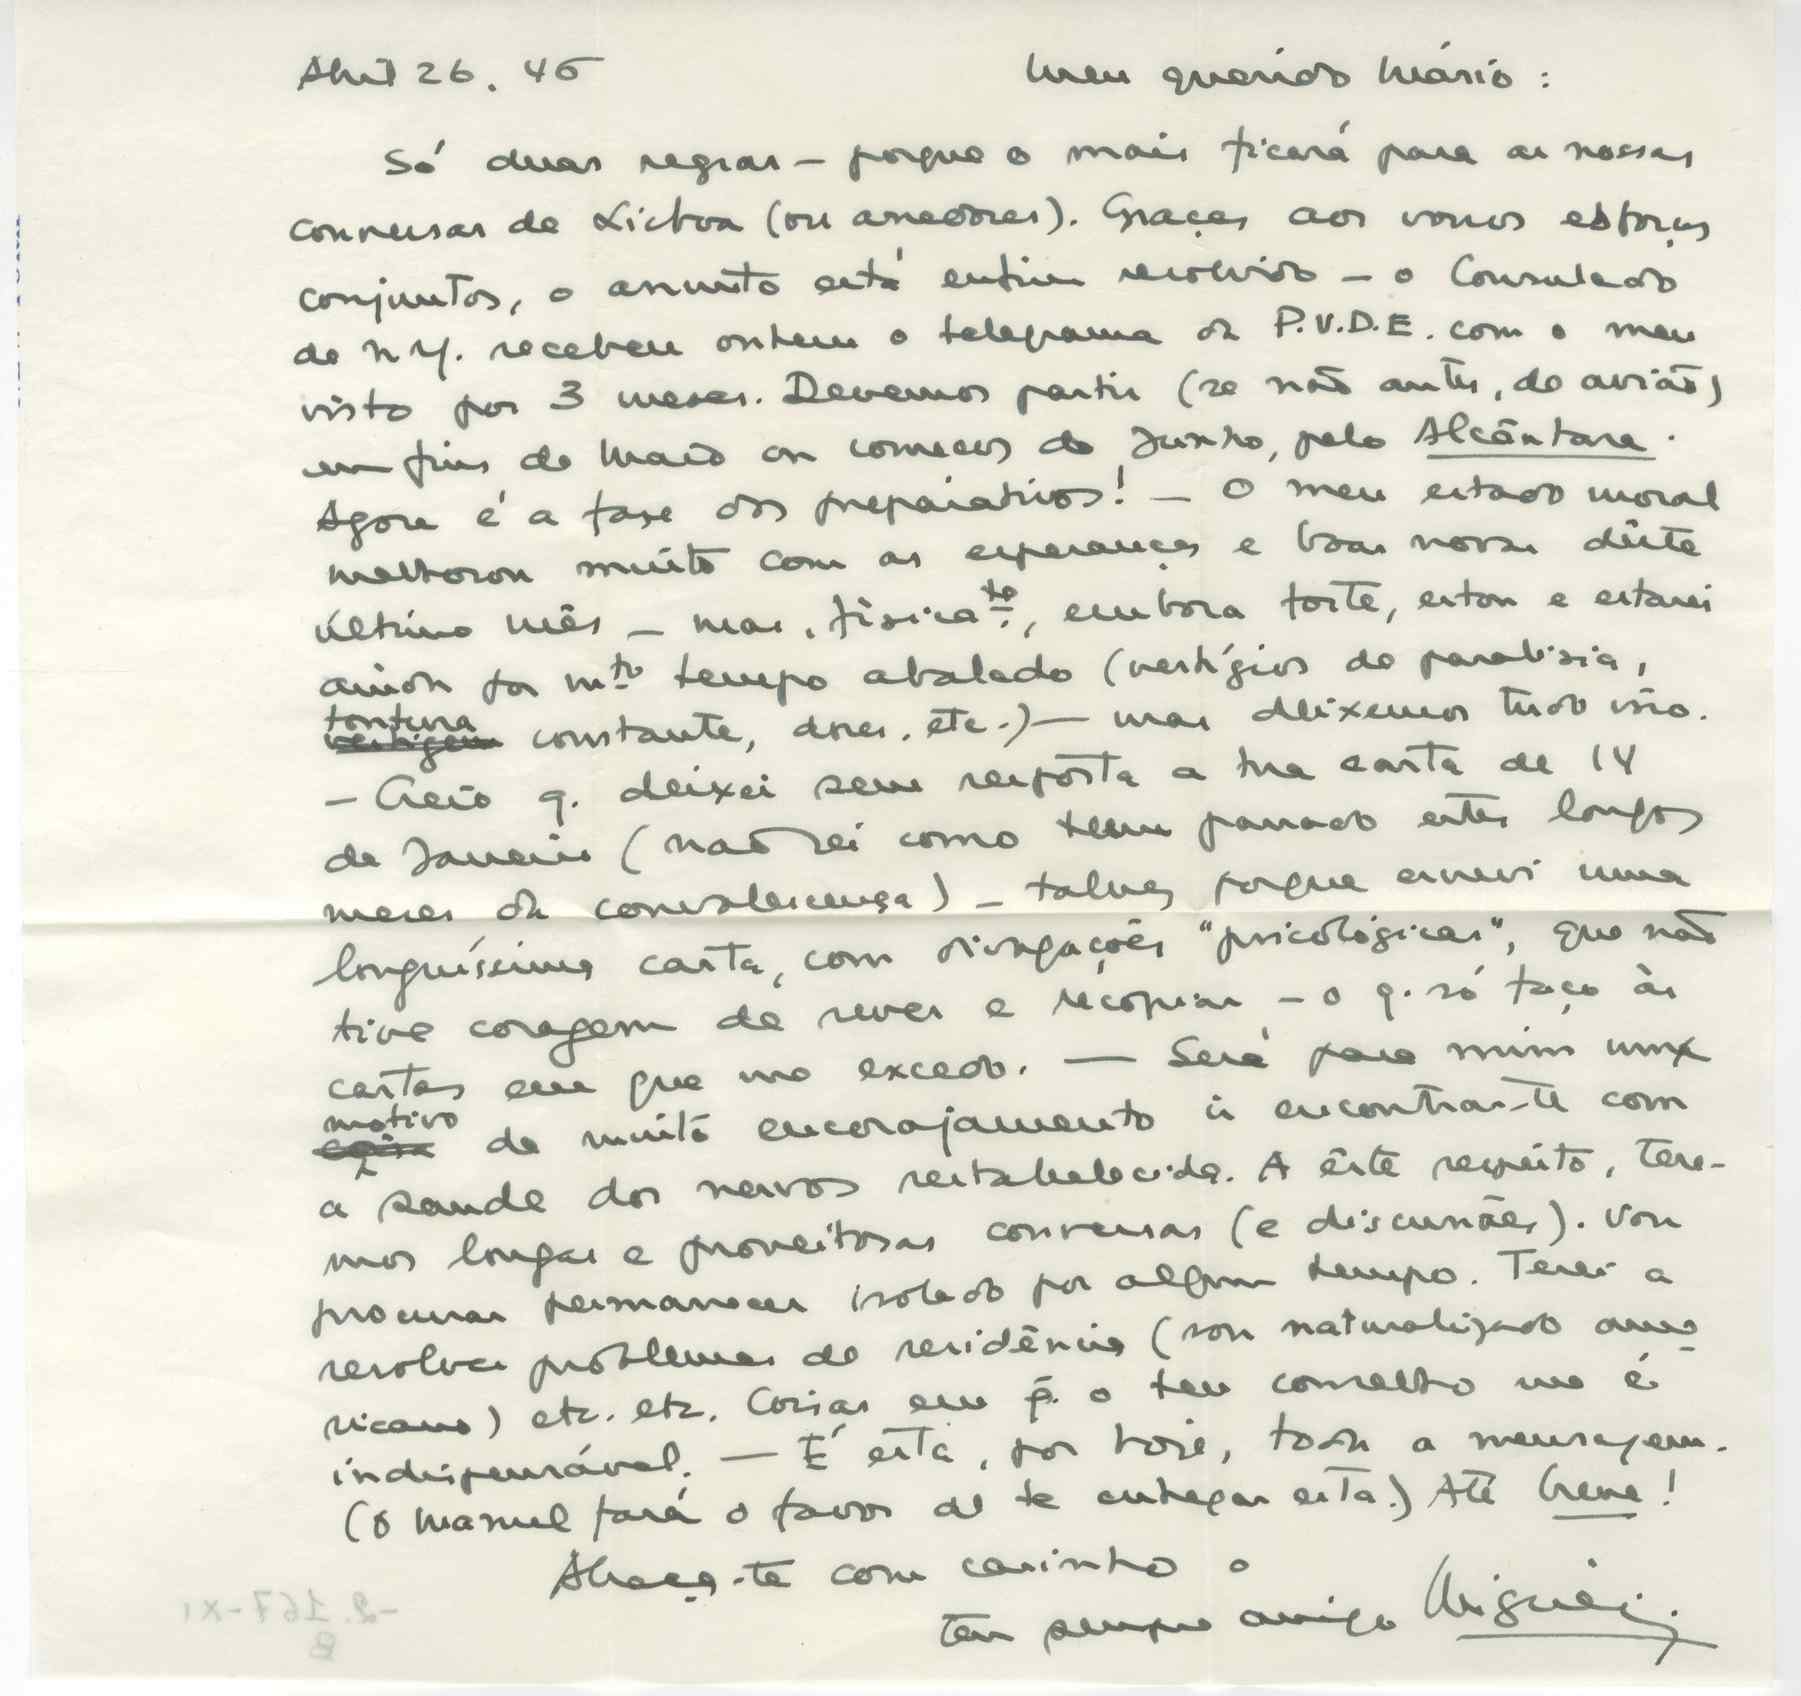 Abril 26. 46 Meu querido Mário:
Só duas regras – porque o mais ficará para as nossas
conversas de Lisboa (ou arredores). Graças aos vossos esforços
conjuntos, o assunto está enfim resolvido – o Consulado
de N.Y. recebeu ontem o telegrama da P.V.D.E. com o meu
visto por 3 meses. Devemos partir (se não antes, de avião)
em fins de Maio ou começos de Junho, pelo Alcântara.
Agora é a fase dos preparativos! – O meu estado moral
melhorou muito com as esperanças e boas novas dêste
último mês – mas, físicate, embora forte, estou e estarei
ainda por mto tempo abalado (vestígios de paralisia,
tontura
vertigem constante, dores, etc.) – mas deixemos tudo isso.
– Creio q. deixei sem resposta a tua carta de 14
de Janeiro (não sei como tem passado estes longos
meses da convalescença) – talvez porque escrevi uma
longuíssima carta, com divagações "psicológicas", que não
tive coragem de rever e recopiar – o q. só faço às
cartas em que me excedo. — Será para mim um
motivo
coisa de muito encorajamento ir encontrar-te com
a saude dos nervos restabelecida. A êste respeito, tere-
mos longas e proveitosas conversas (e discussões). Vou
procurar permanecer isolado por algum tempo. Terei a
resolver problemas de residência (sou naturalizado ame-
ricano) etc. etc. Coisas em q. o teu conselho me é
indispensável. — É esta, por hoje, toda a mensagem.
(O Manuel fará o favor de te entregar esta.) Até breve!
Abraça-te com carinho o
teu sempre amigo Miguéis.
-2.167-XI
B